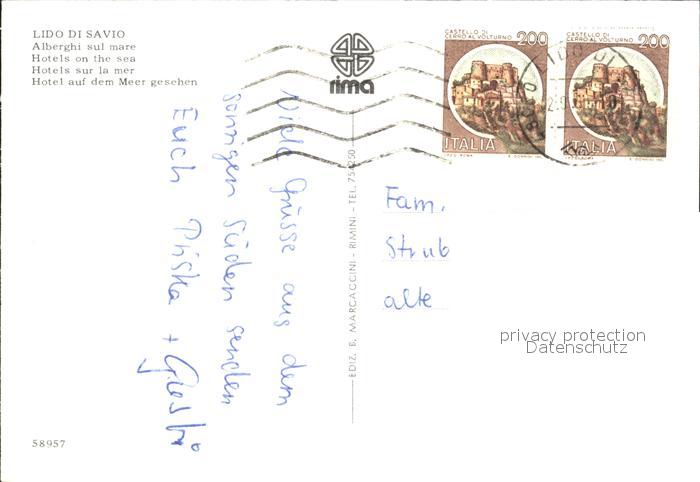 LIDO DI SAVIO
Alberghi sul mare
Hotels on the sea
Hotels sur la mer
Hotel auf dem Meer gesehen
rima
CASTELLO DI
CERRO AL VOLTURNO
200
ITALIA
CASTELLO DI
CERRO AL VOLTURNO
200
ITALIA
Viele Grüsse aus dem
sonnigen Süden senden
Euch Priska + Guesti
EDIZ. B. MARCACCINI - RIMINI - TEL. 754250
Fam.
Strub
alte
privacy protection
Datenschutz
58957